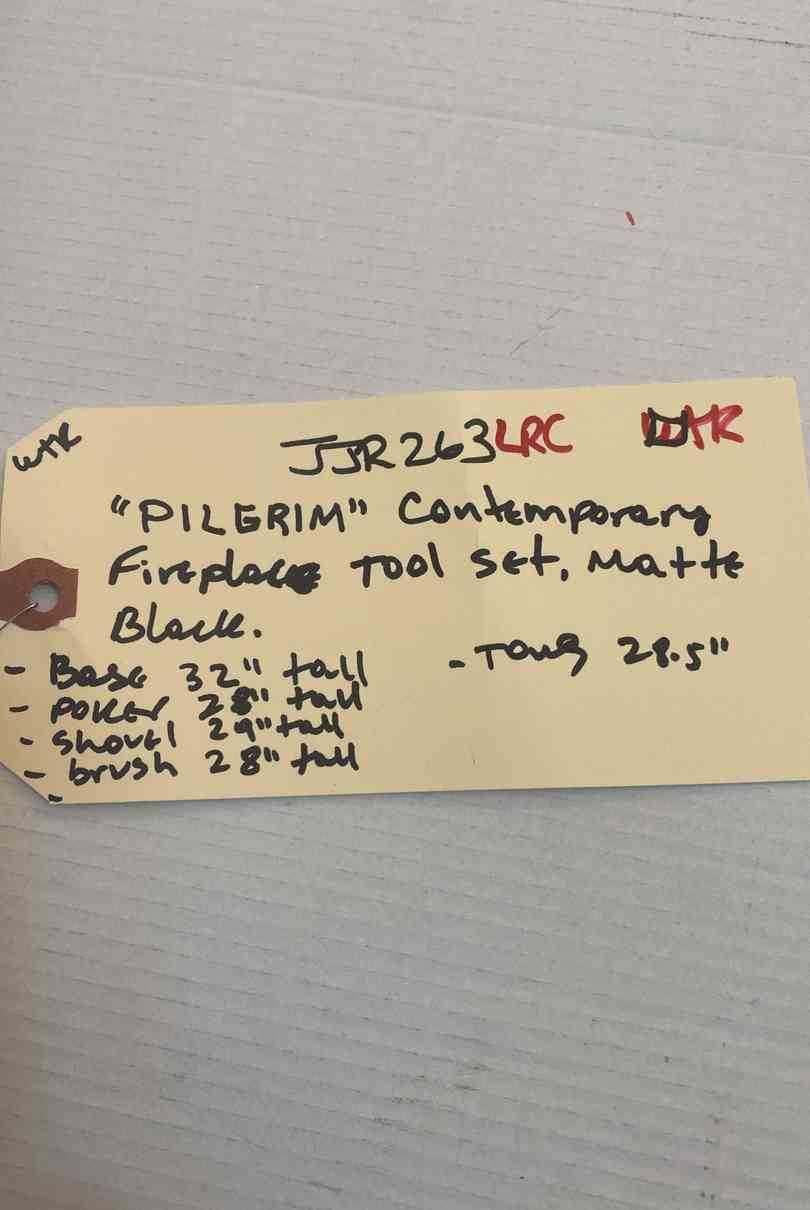 WTR
JJR263LRC WTR
"PILGRIM" Contemporary
Fireplace Tool set, Matte
Black.
- Base 32" tall
- Poker 28" tall
- shovel 29" tall
- brush 28" tall
-
- Tong 28.5"